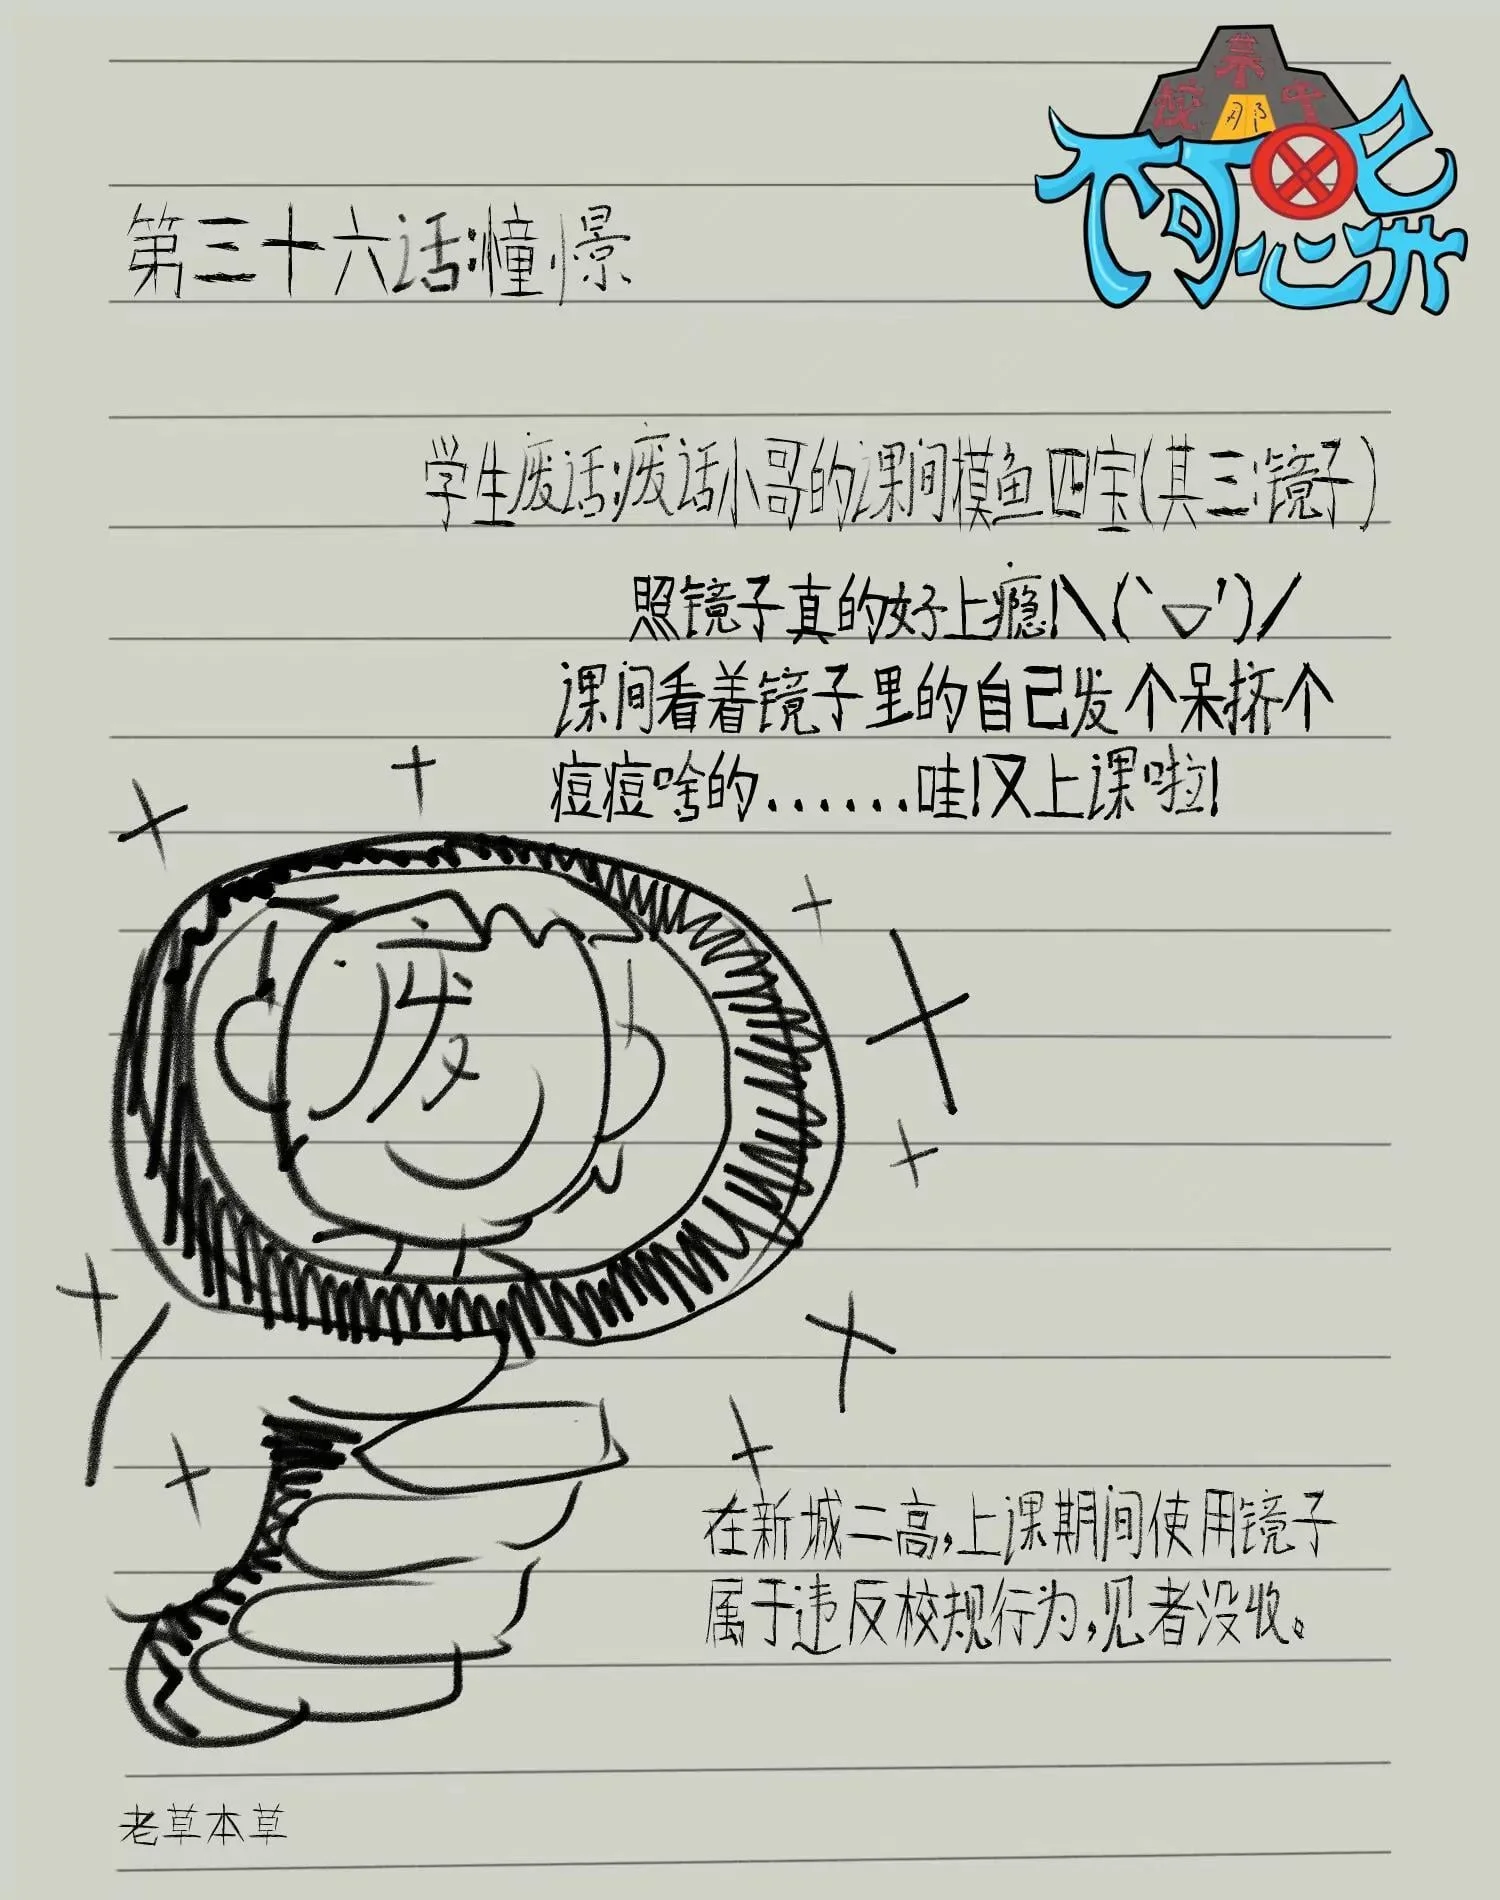 那
不可思异
第三十六话:憧憬
学生废话:废话小哥的课间摸鱼四宝(其三:镜子)
照镜子真的好上瘾!\(`▽')/
课间看着镜子里的自己发个呆挤个
痘痘啥的......哇!又上课啦!
废
在新城二高,上课期间使用镜子
属于违反校规行为,见者没收。
老草本草